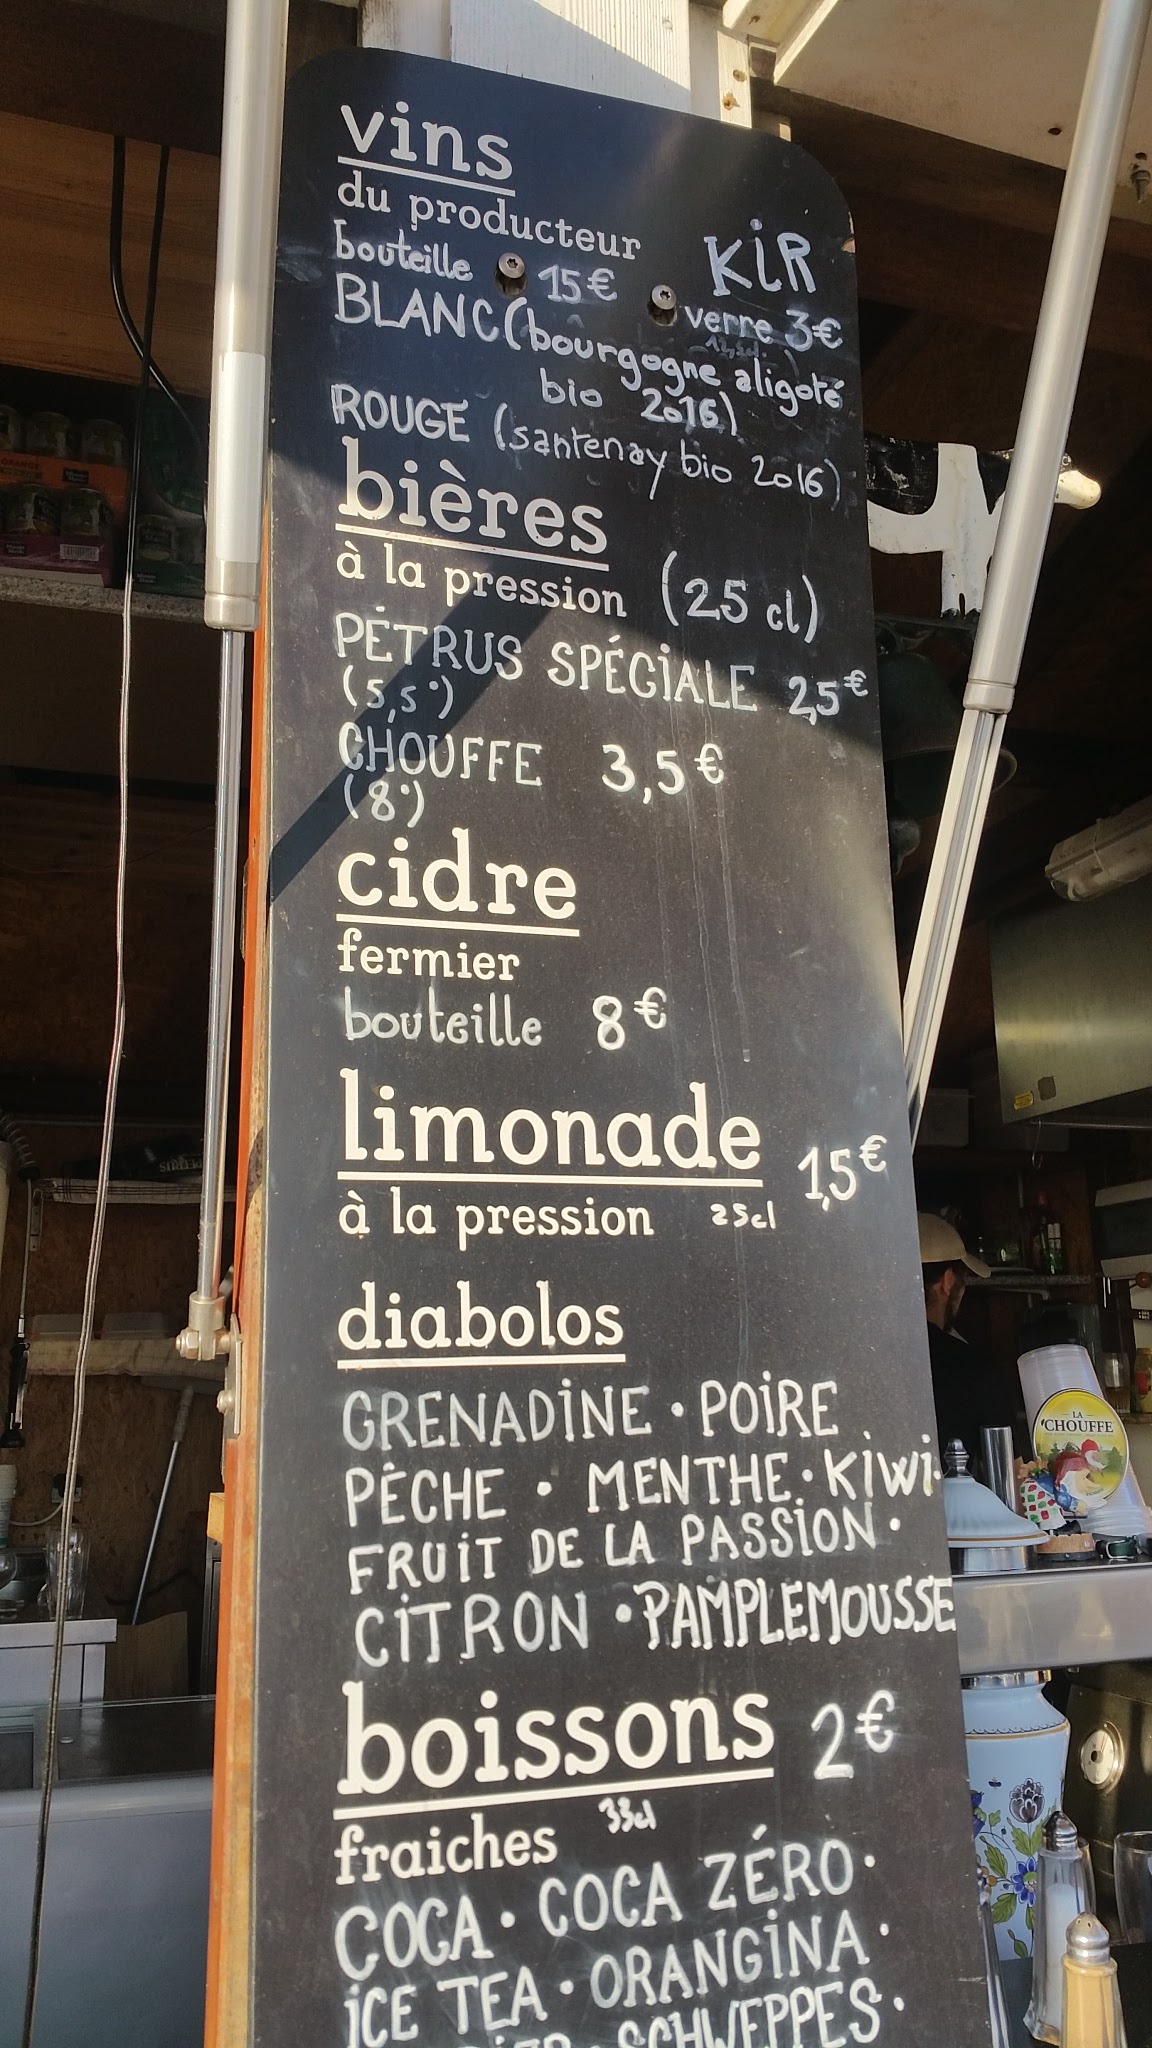 vins
du producteur
bouteille 15€
KiR
verre 3€
12,5cl.
BLANC (bourgogne aligoté
bio 2016)
ROUGE (santenay bio 2016)
bières
à la pression (25 cl)
PÉTRUS SPÉCiALE 2,5€
(5,5°)
CHOUFFE 3,5€
(8°)
cidre
fermier
bouteille 8€
limonade 1,5€
à la pression 25cl
diabolos
GRENADiNE · POiRE
PÊCHE · MENTHE · KiWi ·
FRUiT DE LA PASSiON ·
CiTRON · PAMPLEMOUSSE
boissons 2€
fraiches 33cl
COCA · COCA ZÉRO ·
iCE TEA · ORANGiNA ·
SCHWEPPES ·
LA
CHOUFFE